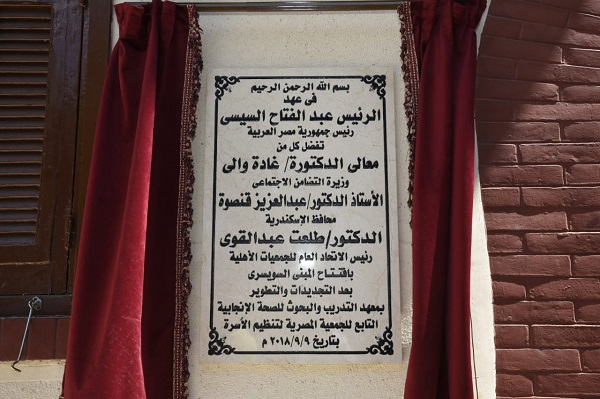 بسم الله الرحمن الرحيم
فى عهد
الرئيس عبد الفتاح السيسى
رئيس جمهورية مصر العربية
تفضل كل من
معالى الدكتورة/ غادة والى
وزيرة التضامن الاجتماعى
الأستاذ الدكتور/عبدالعزيز قنصوة
محافظ الإسكندرية
الدكتور/طلعت عبدالقوى
رئيس الاتحاد العام للجمعيات الأهلية
بافتتاح المبنى السويسرى
بعد التجديدات والتطوير
بمعهد التدريب والبحوث للصحة الإنجابية
التابع للجمعية المصرية لتنظيم الأسرة
بتاريخ ٢٠١٨/٩/٩ م